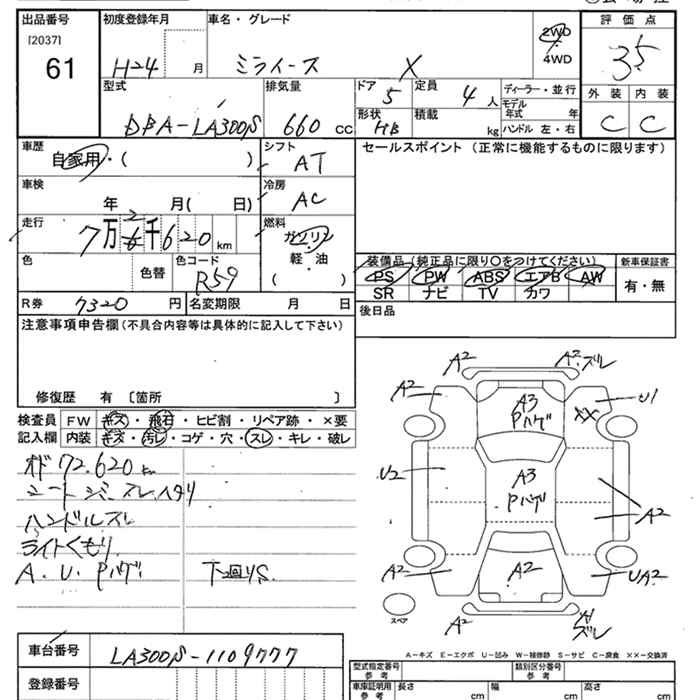 出品番号 初度登録年月 車名・グレード 評価点
[2037] 2WD
61 H24 月 ミライース X 4WD 35
型式 排気量 ドア 5 定員 4人 ディーラー・並行 外装 内装
DBA-LA300S 660 cc 形状 HB 積載 kg モデル年式 年 C C
ハンドル 左・右
車歴 自家用・( ) シフト AT セールスポイント(正常に機能するものに限ります)
車検 年 月( 日) 冷房 AC
走行 7万 2千620km 燃料 ガソリン・軽・油 ( )
装備品(純正品に限り○をつけてください) 新車保証書
色 色替 色コード R59 PS PW ABS エアB AW 有・無
SR ナビ TV カワ
R券 7320 円 名変期限 月 日 後日品
注意事項申告欄(不具合内容等は具体的に記入して下さい)
修復歴 有 〔箇所 〕
検査員 FW キズ・飛石・ヒビ割・リペア跡・×要
記入欄 内装 キズ・汚レ・コゲ・穴・スレ・キレ・破レ
オド 72.620 km
ハンドルスレ
ライトくもり
A.U.Pハゲ 下回りS
A2 A2.ズレ
A2 A3 Pハゲ U1
XX
U2 A3 Pハゲ A2
A2 A2 UA2
A2 ズレ
スペア
A-キズ E-エクボ U-凹み W-補修跡 S-サビ C-腐食 ××-交換済
車台番号 LA300S-1109777
型式指定番号 参考 類別区分番号 参考
登録番号 車庫証明用 参考 長さ cm 幅 cm 高さ cm